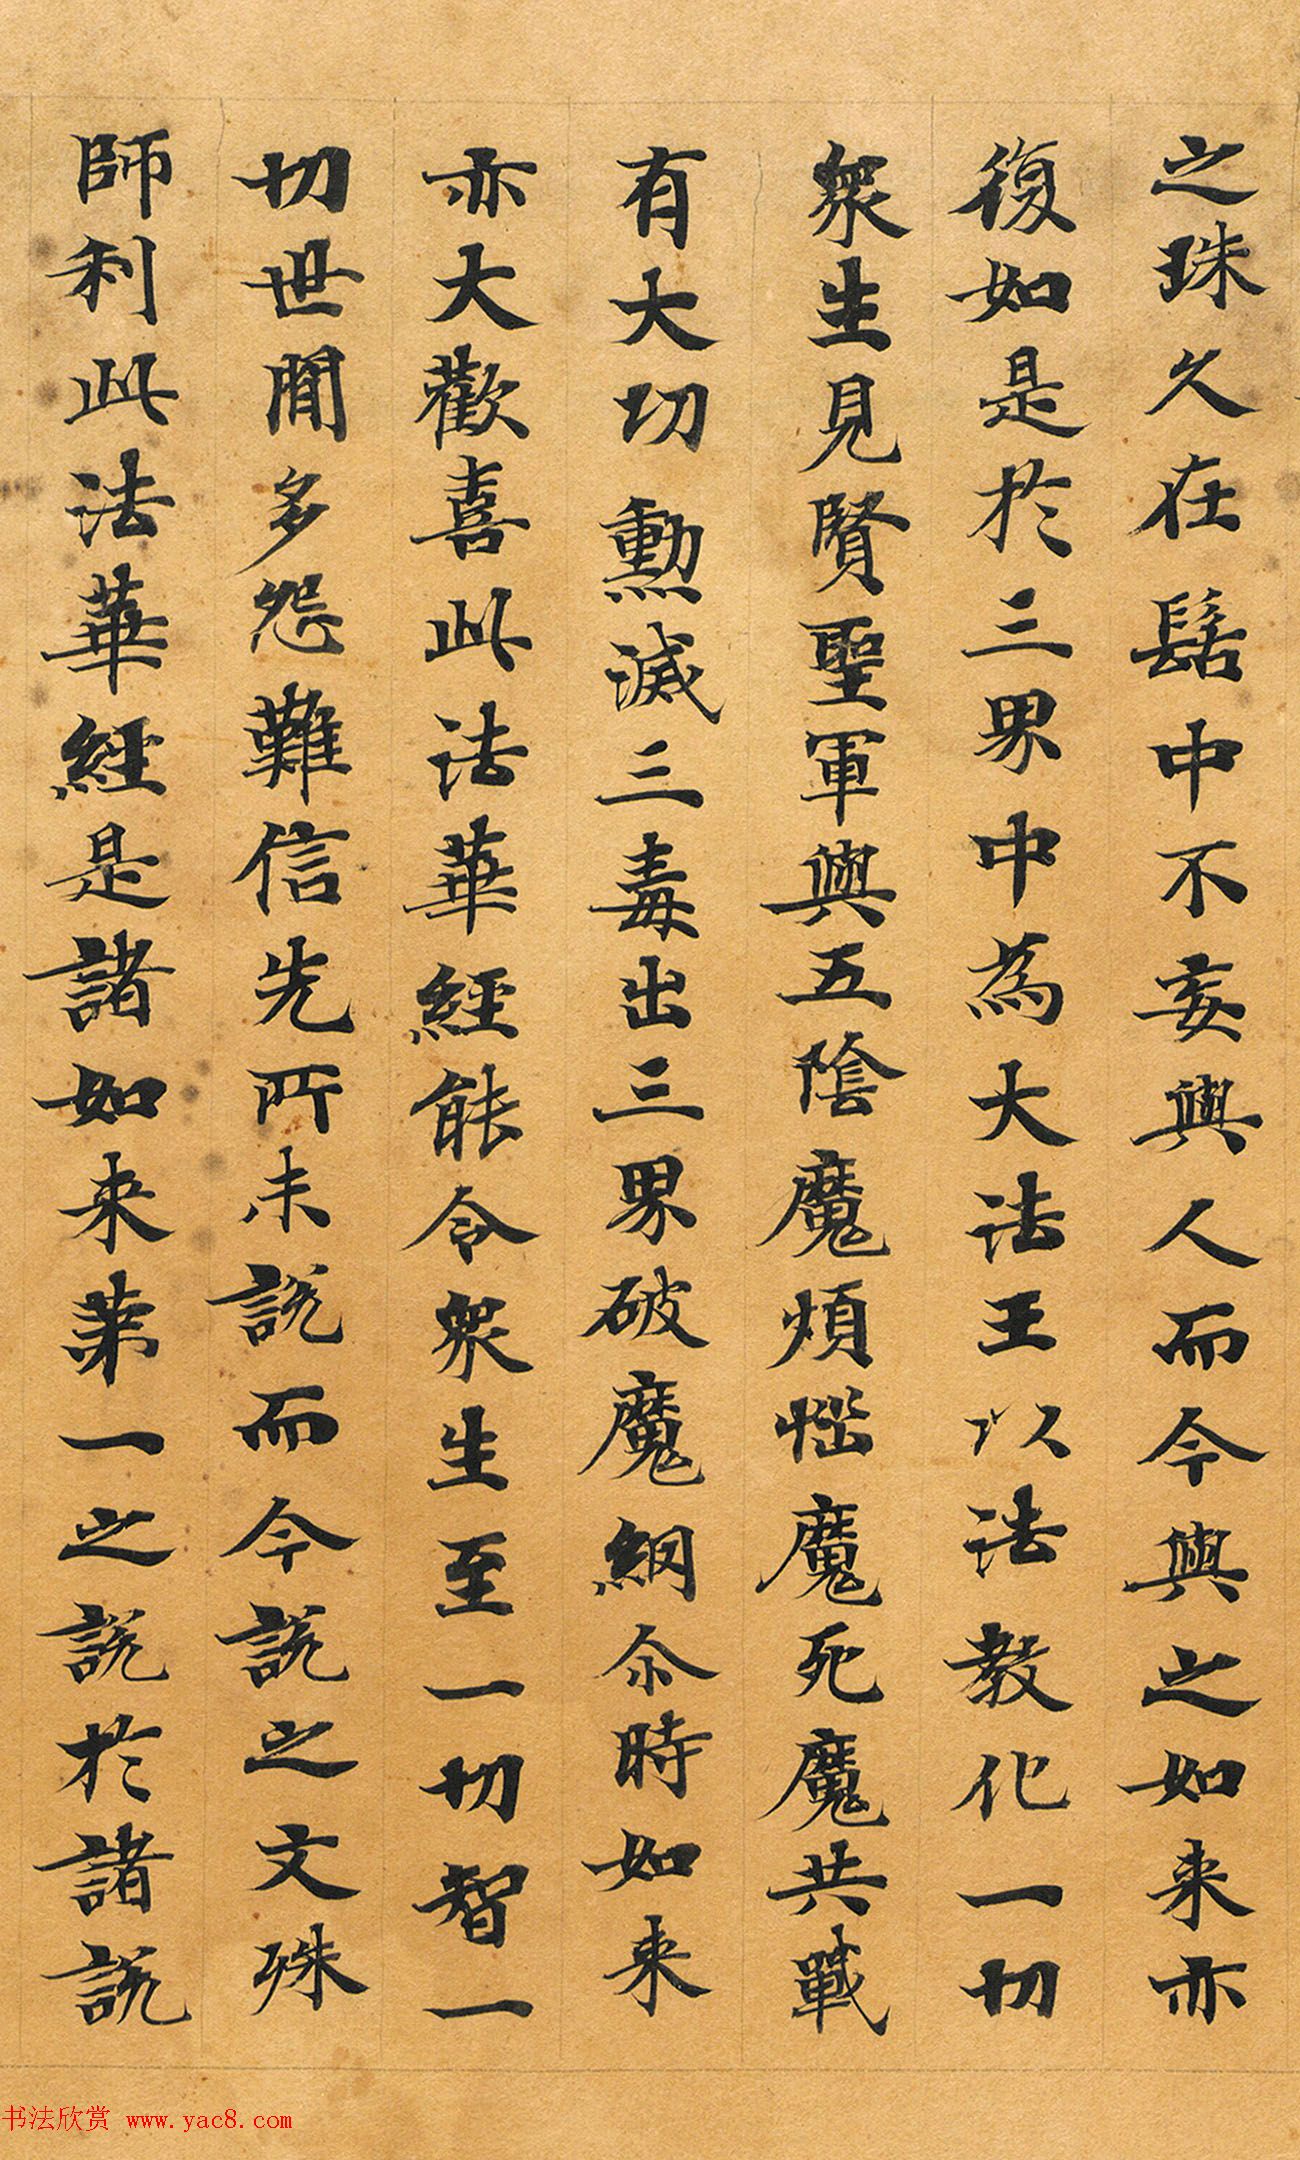 之珠久在髻中不妄與人而今與之如来亦
復如是於三界中為大法王以法教化一切
衆生見賢聖軍與五陰魔煩惱魔死魔共戰
有大切勲滅三毒出三界破魔網尒時如来
亦大歡喜此法華經能令衆生至一切智一
切世間多怨難信先所未說而今說之文殊
師利此法華經是諸如来第一之說於諸說
书法欣赏 www.yac8.com